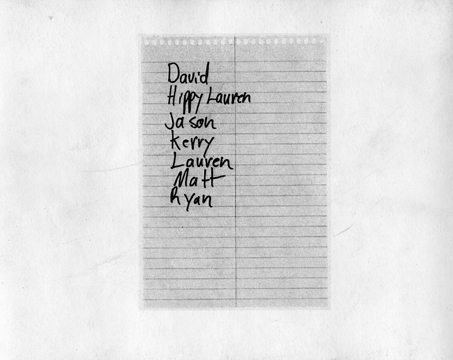 David
Hippy Lauren
Jason
Kerry
Lauren
Matt
Ryan